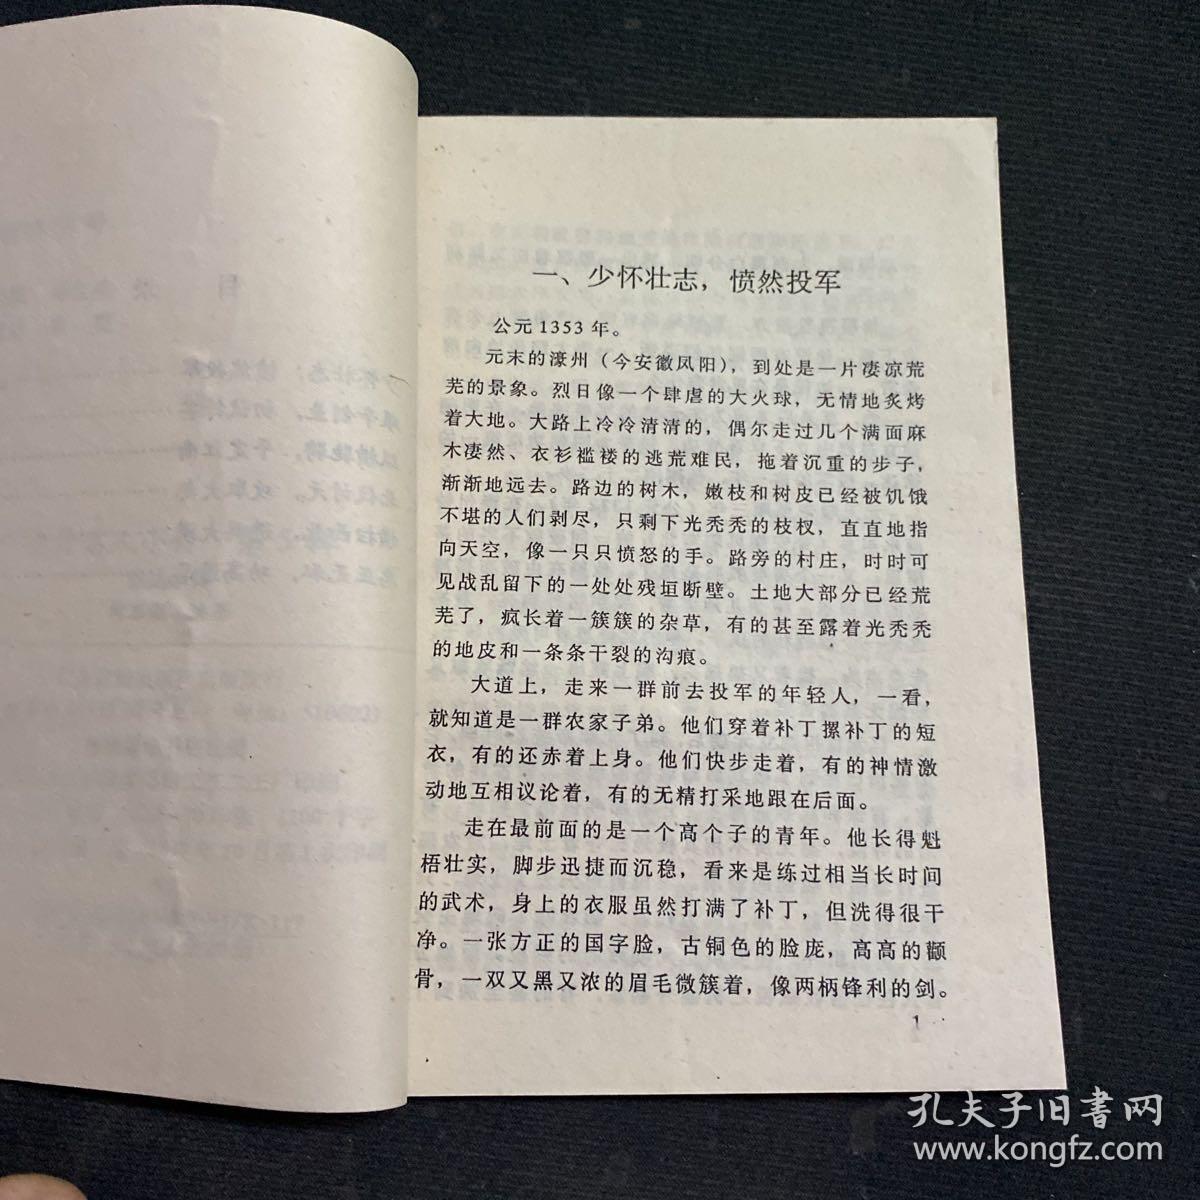 一、少怀壮志，愤然投军
公元1353年。
元末的濠州（今安徽凤阳），到处是一片凄凉荒
芜的景象。烈日像一个肆虐的大火球，无情地炙烤
着大地。大路上冷冷清清的，偶尔走过几个满面麻
木凄然、衣衫褴褛的逃荒难民，拖着沉重的步子，
渐渐地远去。路边的树木，嫩枝和树皮已经被饥饿
不堪的人们剥尽，只剩下光秃秃的枝杈，直直地指
向天空，像一只只愤怒的手。路旁的村庄，时时可
见战乱留下的一处处残垣断壁。土地大部分已经荒
芜了，疯长着一簇簇的杂草，有的甚至露着光秃秃
的地皮和一条条干裂的沟痕。
大道上，走来一群前去投军的年轻人，一看，
就知道是一群农家子弟。他们穿着补丁摞补丁的短
衣，有的还赤着上身。他们快步走着，有的神情激
动地互相议论着，有的无精打采地跟在后面。
走在最前面的是一个高个子的青年。他长得魁
梧壮实，脚步迅捷而沉稳，看来是练过相当长时间
的武术，身上的衣服虽然打满了补丁，但洗得很干
净。一张方正的国字脸，古铜色的脸庞，高高的颧
骨，一双又黑又浓的眉毛微簇着，像两柄锋利的剑。
1
孔夫子旧书网
www.kongfz.com